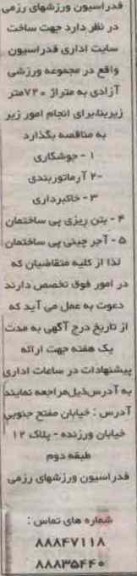 فدراسیون ورزشهای رزمی
در نظر دارد جهت ساخت
سایت اداری فدراسیون
واقع در مجموعه ورزشی
آزادی به متراژ ۷۲۰متر
زیربنا،برای انجام امور زیر
به مناقصه بگذارد
۱ - جوشکاری
۲- آرماتوربندی
۳ - خاکبرداری
۴ - بتن ریزی پی ساختمان
۵ - آجر چینی پی ساختمان
لذا از کلیه متقاضیان که
در امور فوق تخصص دارند
دعوت به عمل می آید که
از تاریخ درج آگهی به مدت
یک هفته جهت ارائه
پیشنهادات در ساعات اداری
به آدرس‌ذیل‌مراجعه نمایند
آدرس : خیابان مفتح جنوبی
خیابان ورزنده - پلاک ۱۲
طبقه دوم
فدراسیون ورزشهای رزمی
شماره های تماس :
۸۸۸۴۷۱۱۸
۸۸۸۳۵۴۴۰